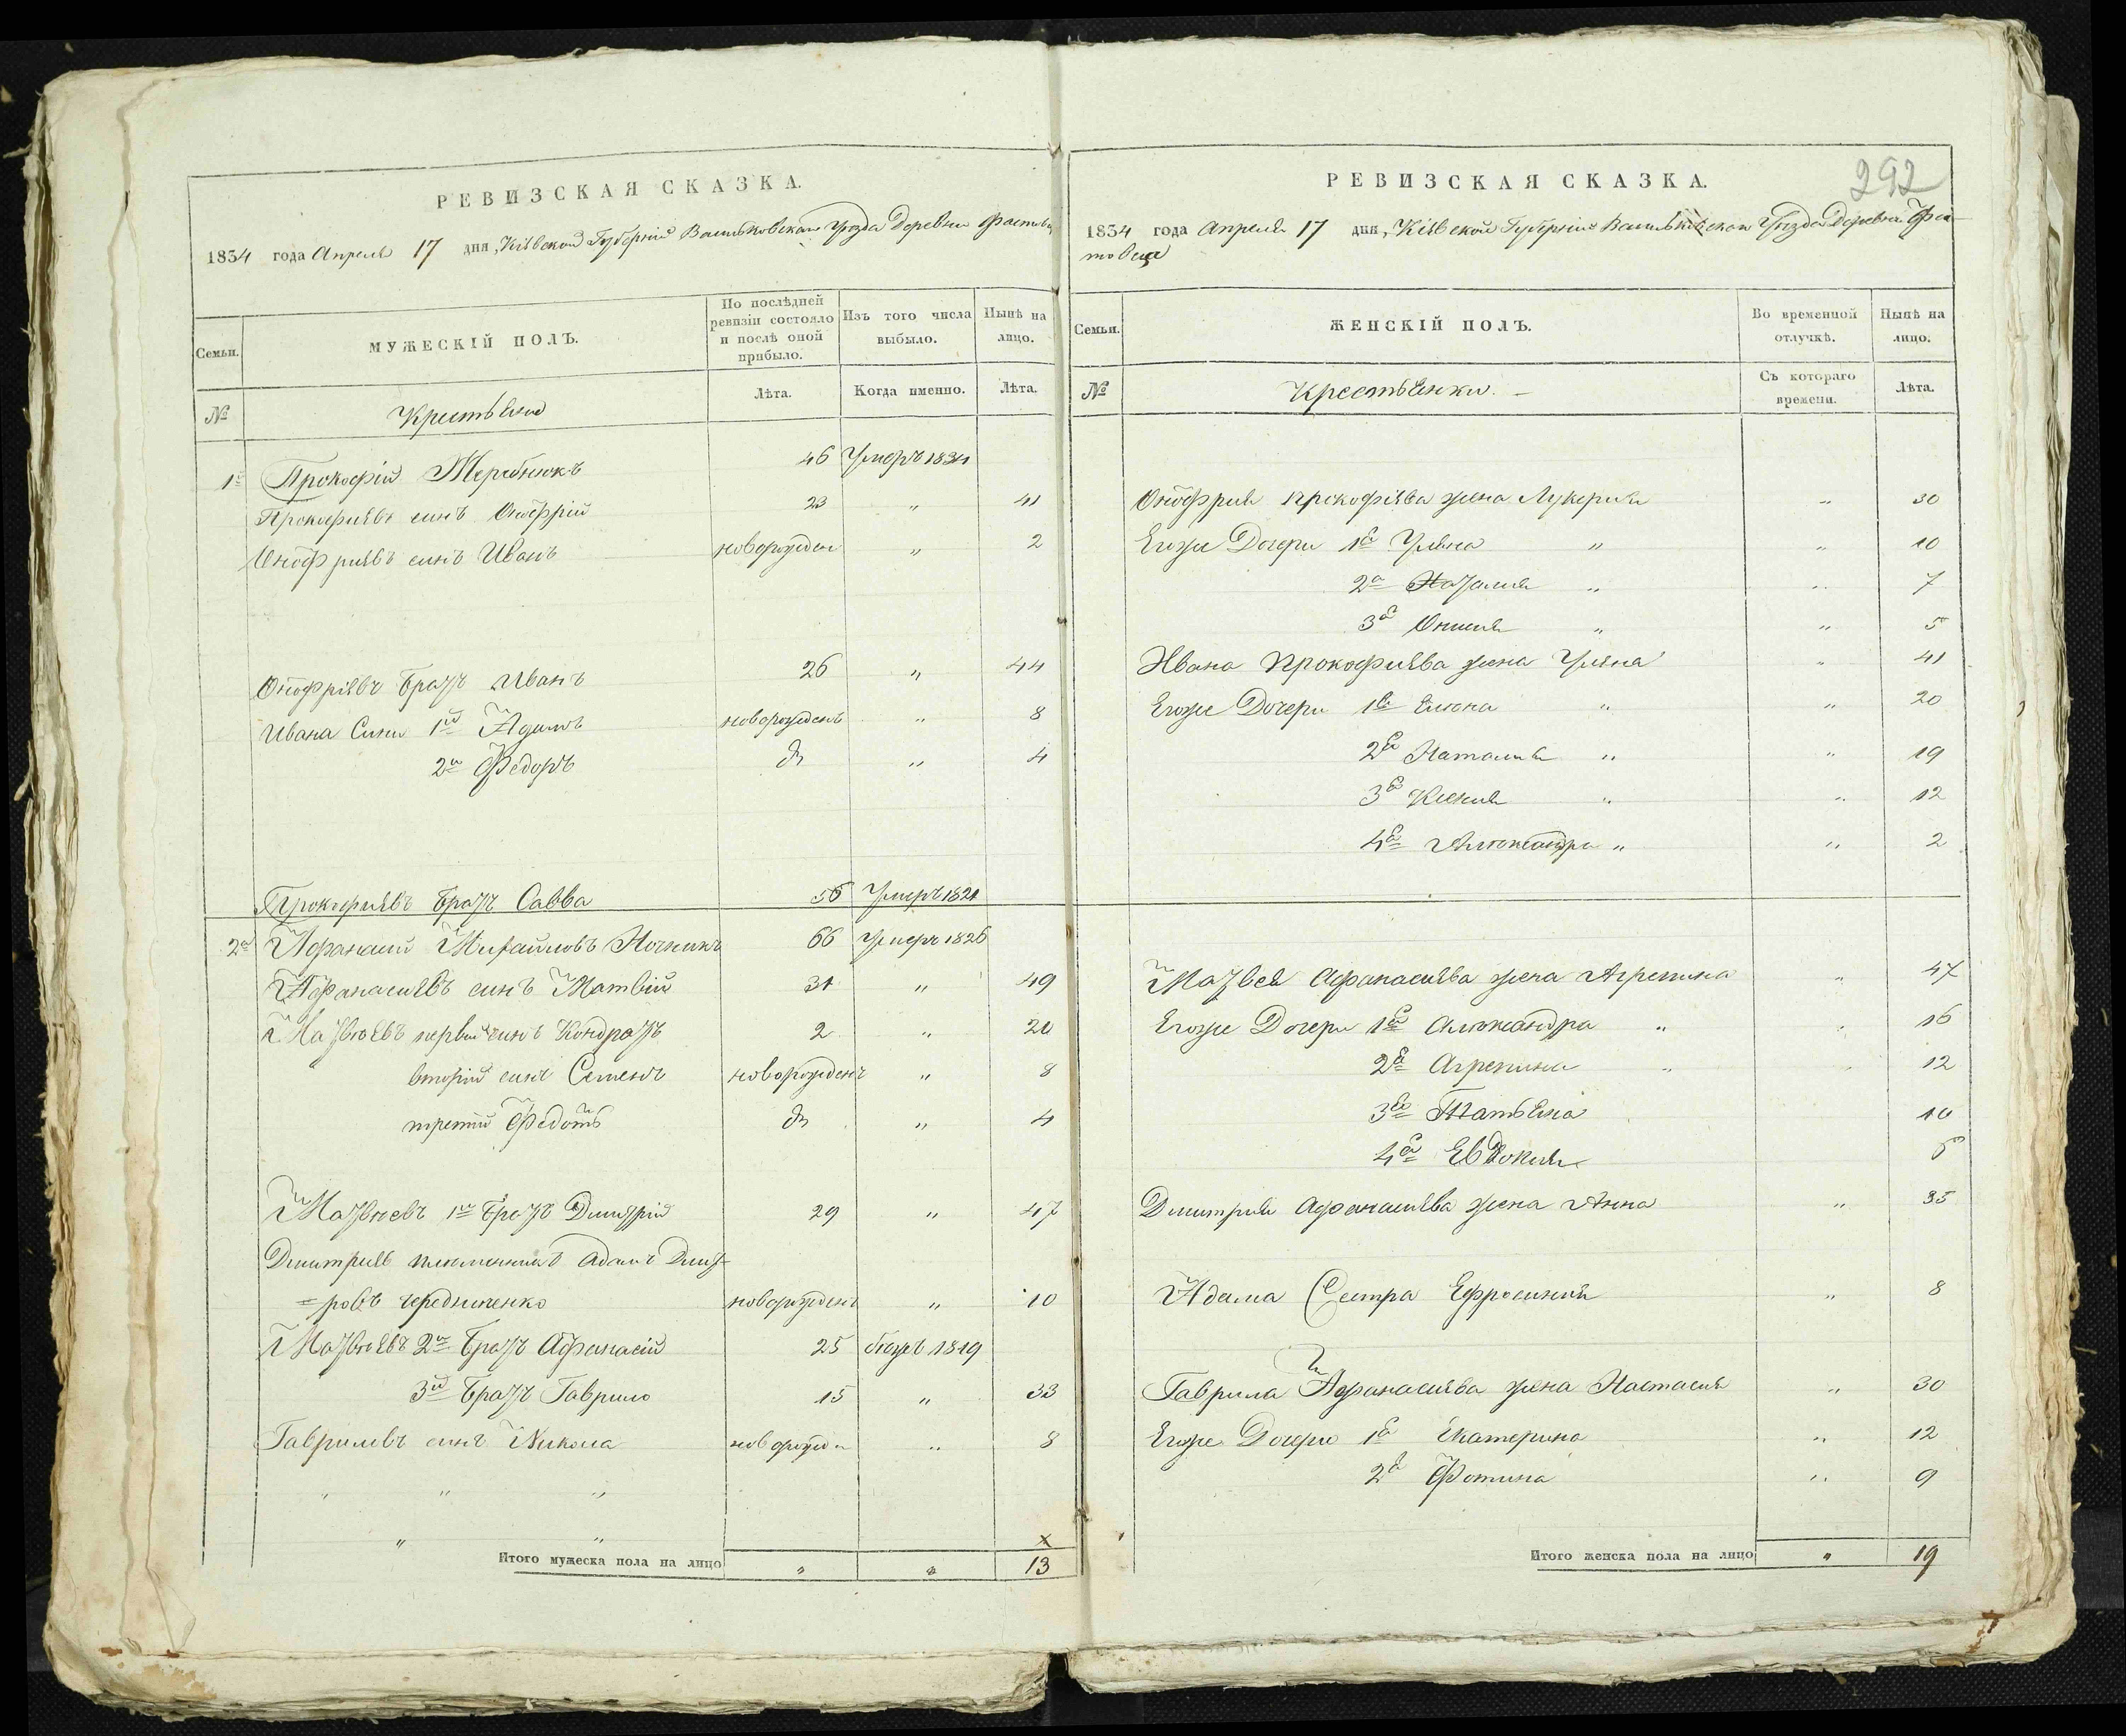 РЕВИЗСКАЯ СКАЗКА.
1834 года Апреля 17 дня, Кіевской Губерніи Васильковскаго Уезда Деревни Фастовца
Семьи.
МУЖЕСКІЙ ПОЛЪ.
По послѣдней ревизіи состояло и послѣ оной прибыло.
Изъ того числа выбыло.
Нынѣ на лицо.
№
Крестьяне
Лѣта.
Когда именно.
Лѣта.
1й Прокофій 46 Умеръ 1831
Прокофиевъ синъ Онофрій 23 " 41
Онофриевъ синъ Иванъ новорожден " 2
Онофріевъ братъ Иванъ 26 " 44
Ивана Сини 1й Адамъ новорожденъ " 8
2й Федоръ " 4
Прокофиевъ братъ Савва 56 Умеръ 1821
2й Афанасий Михайловъ 66 Умеръ 1826
Афанасиевъ синъ Матвій 31 " 49
Матвѣевъ первий синъ Кондратъ 2 " 20
вторій синъ Семенъ новорожденъ " 8
третій Федотъ " 4
Матвѣевъ 1й братъ Дмитрій 29 " 47
Дмитриев племенникъ Адамъ Дмит-
=ровъ чередниченко новорожденъ " 10
Матвѣевъ 2й братъ Афанасій 25 бежа 1819
3й братъ Гаврило 15 " 33
Гавриловъ синъ Никола новорожден " 8
" " "
" "
х
Итого мужеска пола на лицо " " 13
292
РЕВИЗСКАЯ СКАЗКА.
1834 года Апреля 17 дня, Кіевской Губерніи Васильковскаго Уезда Деревни Фас-
товца
Семьи.
ЖЕНСКІЙ ПОЛЪ.
Во временной отлучкѣ.
Нынѣ на лицо.
№
Крестьянки. –
Съ котораго времени.
Лѣта.
Онофрия Прокофіева жена Лукерия " 30
Егоже Дочери 1я Уляна " " 10
2я Наталия " " 7
3я " " 5
Ивана Прокофиева жена Уляна " 41
Егоже Дочери 1я Елена " " 20
2я Наталия " " 19
3я Ксения " " 12
4я Александра " " 2
Матвея Афанасиева жена Агрепина " 47
Егоже Дочери 1я Александра " " 16
2я Агрепина " " 12
3я Татьяна 10
4я Евдокия 6
Дмитрия Афанасиева жена Анна " 35
Адама Сестра Ефросиния " 8
Гаврила Афанасиева жена Настасия " 30
Егоже Дочери 1я Екатерина " 12
2я Фотина " 9
Итого женска пола на лицо " 19